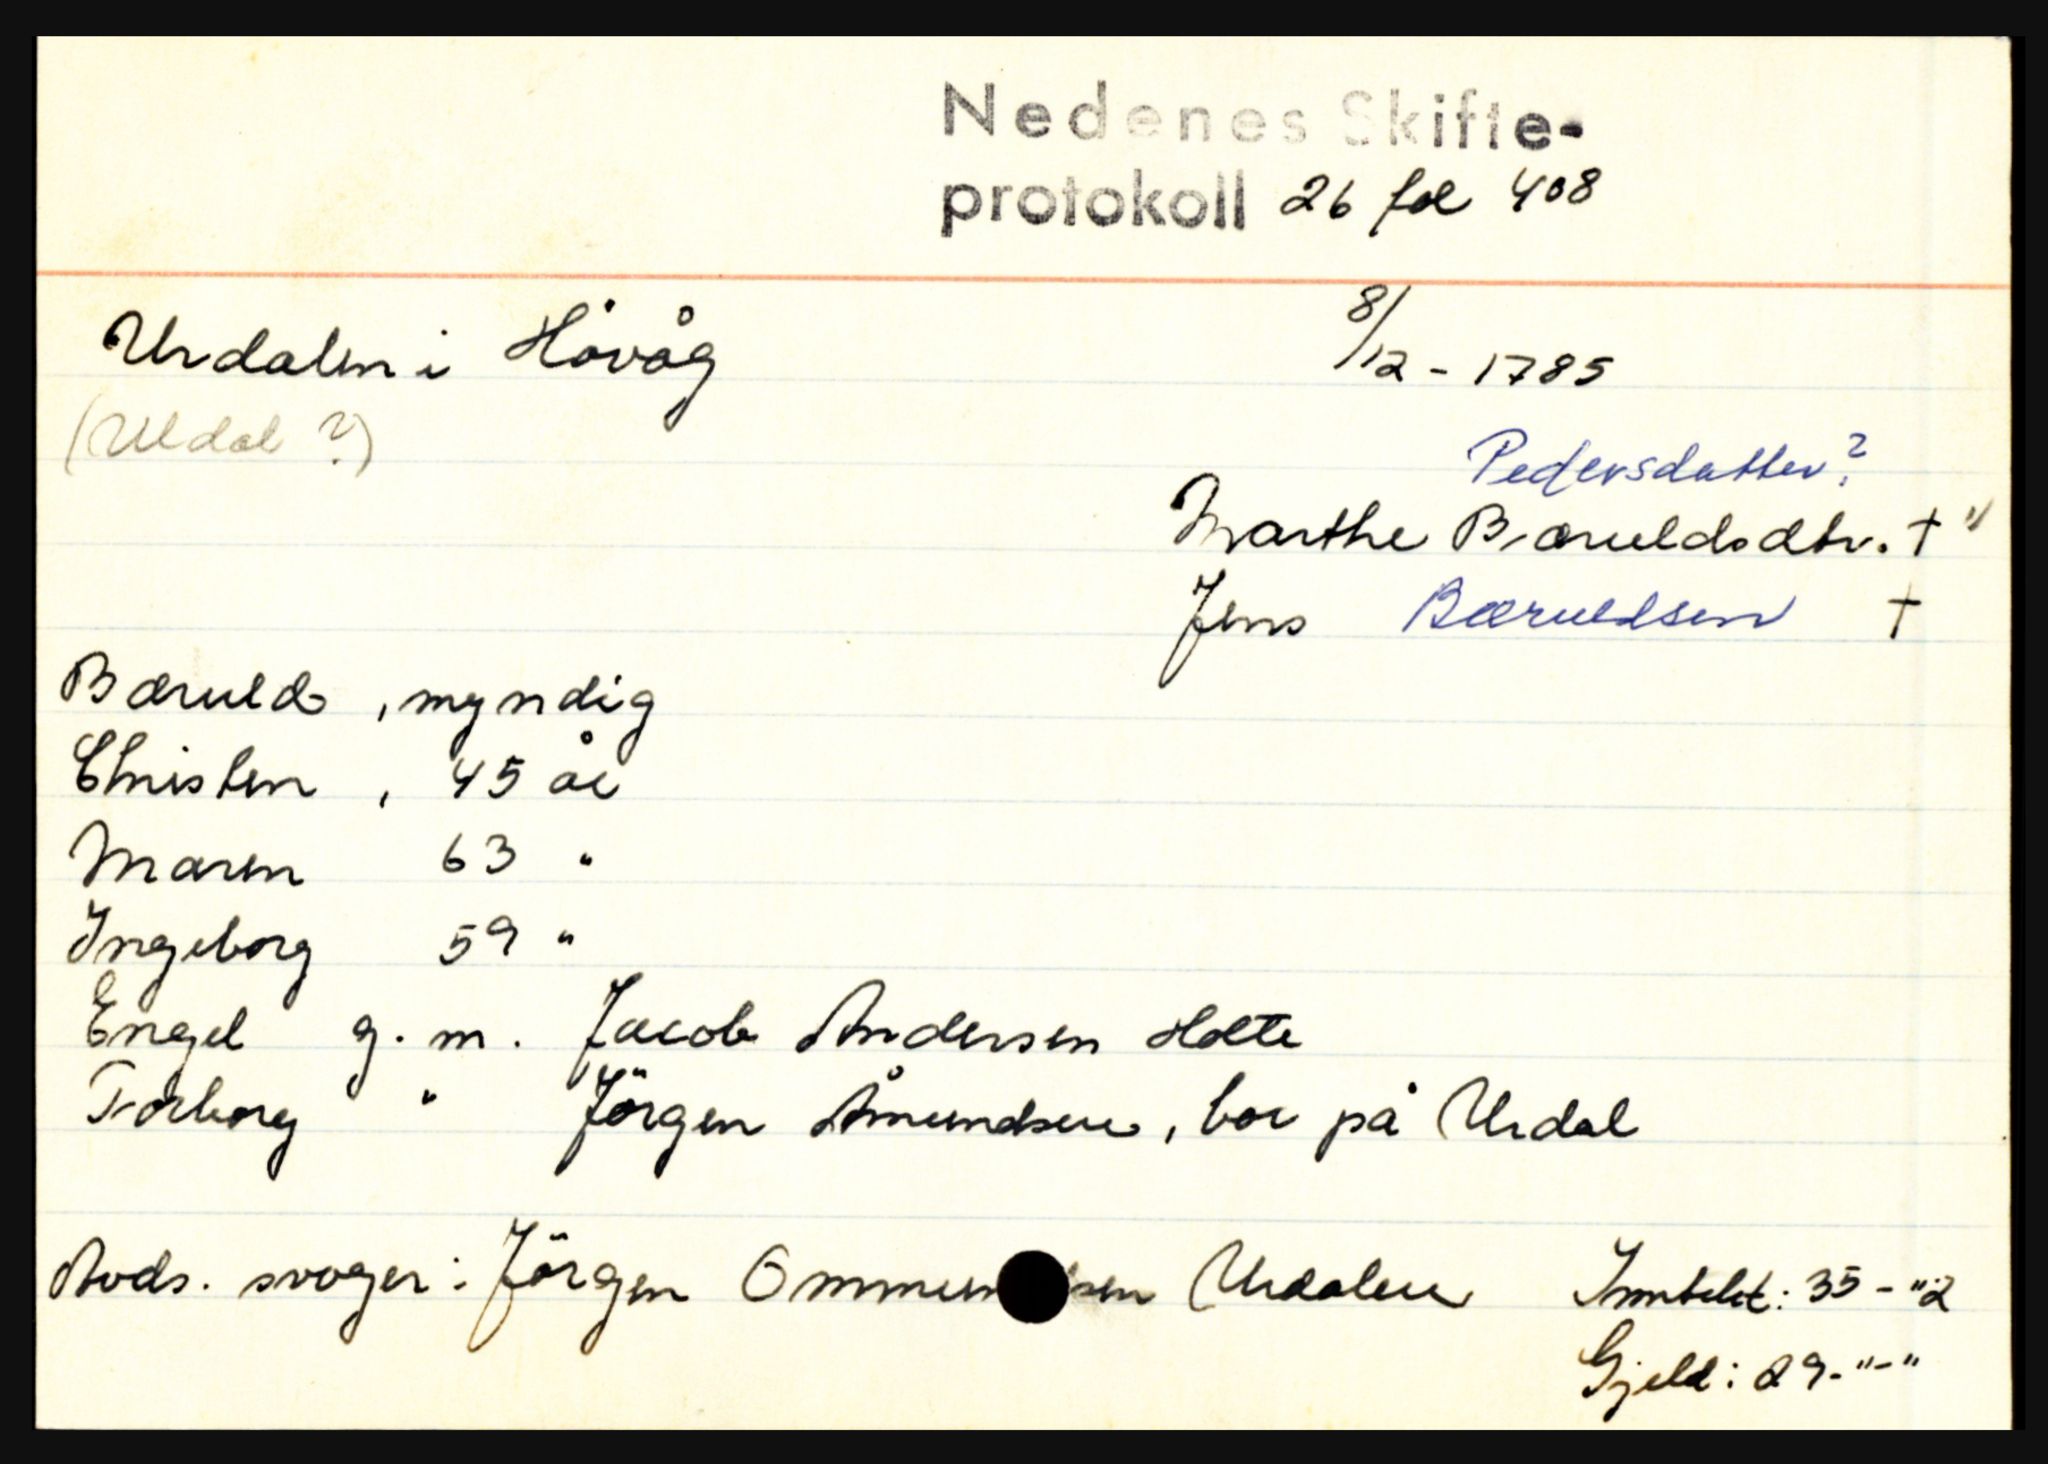 Nedenes Skifte-
protokoll 26 fol 408
Urdalen i Hövåg
8/12 - 1785
(Uldal ?)
Pedersdatter?
Marthe Bæruldsdtr. † "
Jens Bæruldsen †
Bæruld , myndig
Christen , 45 år
Maren 63 "
Ingeborg 59 "
Engel g. m. Jacob Andersen Holte
Torborg " Jörgen Åmundsen, bor på Urdal
Avds. svoger: Jörgen Ommun sen Urdalen
Inntekt: 35 - "2
Gjeld: 29-"-"